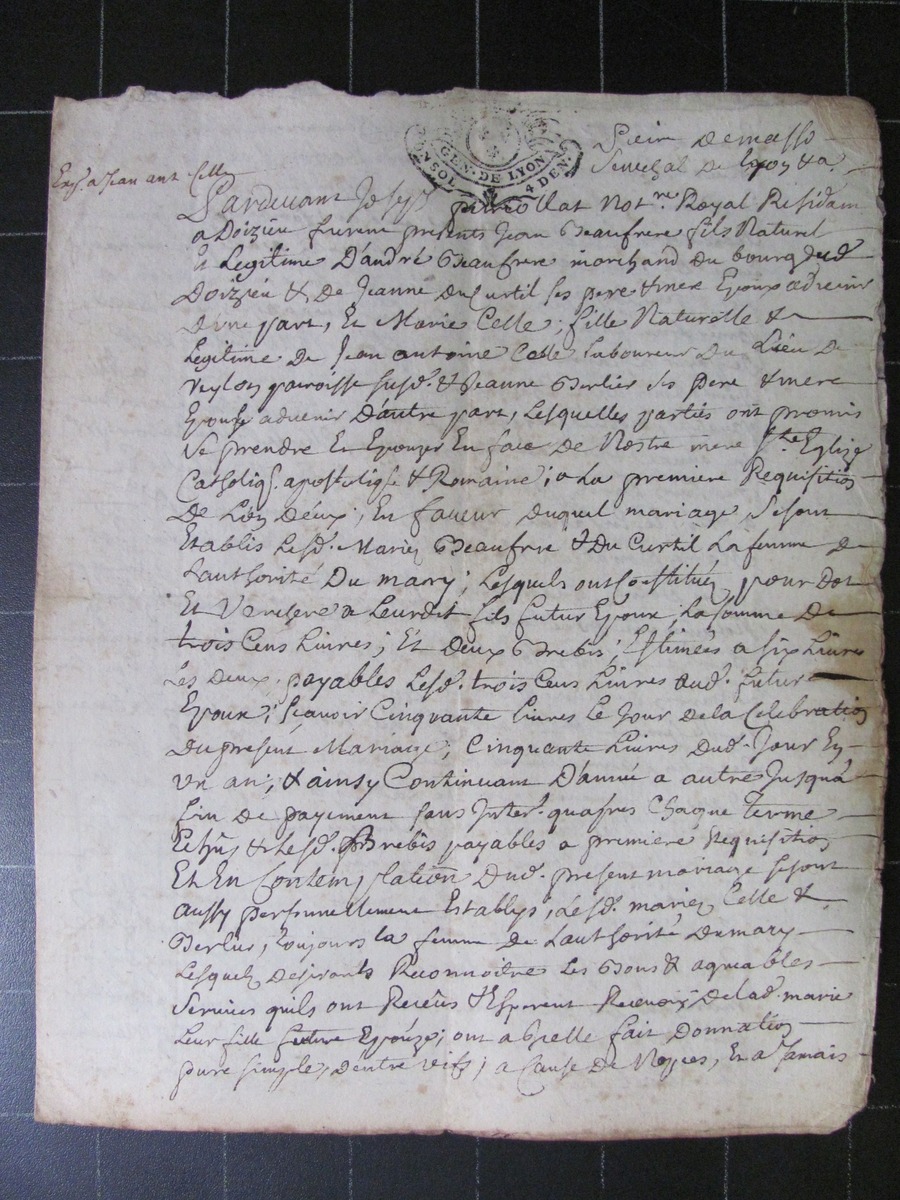 GEN. DE LYON
4 DEN.
Senechal de Lyon &a
Exp. a Jean ant Celle
Pardevant Joseph Not.re Royal Residam
a Doizieu furent presents Jean Beaufrere fils Naturel
& Legitime D'andré Beaufrere marchand du bourg dud.
Doizieu & De Jeanne Du Curtil ses pere & mere Epoux advenir
D'une part, Et Marie Celle; fille Naturelle &
Legitime De Jean antoine Celle laboureur Du Lieu De
paroisse susd. & Jeanne Berlier ses pere & mere
Epouse advenir D'autre part, Lesquelles parties ont promis
Se prendre Et Epouzer En face De Nostre mere Ste Eglize
Catholiq. apostoliqe & Romaine; a La premiere Requisition
De L'un Deux; En faveur duquel mariage, Se sont
Etablis Lesd. Mariez Beaufrere & Du Curtil La femme De
L'authorité Du mary; Lesquels ont Constitué pour Dot
Et Verchere a Leurdit fils futur Epoux, La somme De
trois Cens Livres; Et Deux Brebis; Estimées a six Livres
Les deux, payables Lesd. trois Cens Livres aud. futur
Epoux; sçavoir Cinquante livres Le Jour de la Celebration
Du present Mariage; Cinquante Livres dud. Jour En
un an; & ainsy Continuant D'année a autre Jusqu'a
fin De payement sans Inter. qu'apres Chaque terme
Echus & Lesd. Brebis payables a premiere Requisition
Et En Contemplation Dud. present mariage se sont
aussy personnellement Establys, Lesd. mariez Celle &
Berlier, toujours la femme De L'authorité Du mary
Lesquels Desirants Reconnoitre Les Bons & agreables
Services quils ont Receus & Esperent Recevoir De lad. marie
Leur fille future Epouze; ont a Icelle fait Donnation
pure simple, d'entre vifs, a Cause De Nopces, Et a Jamais